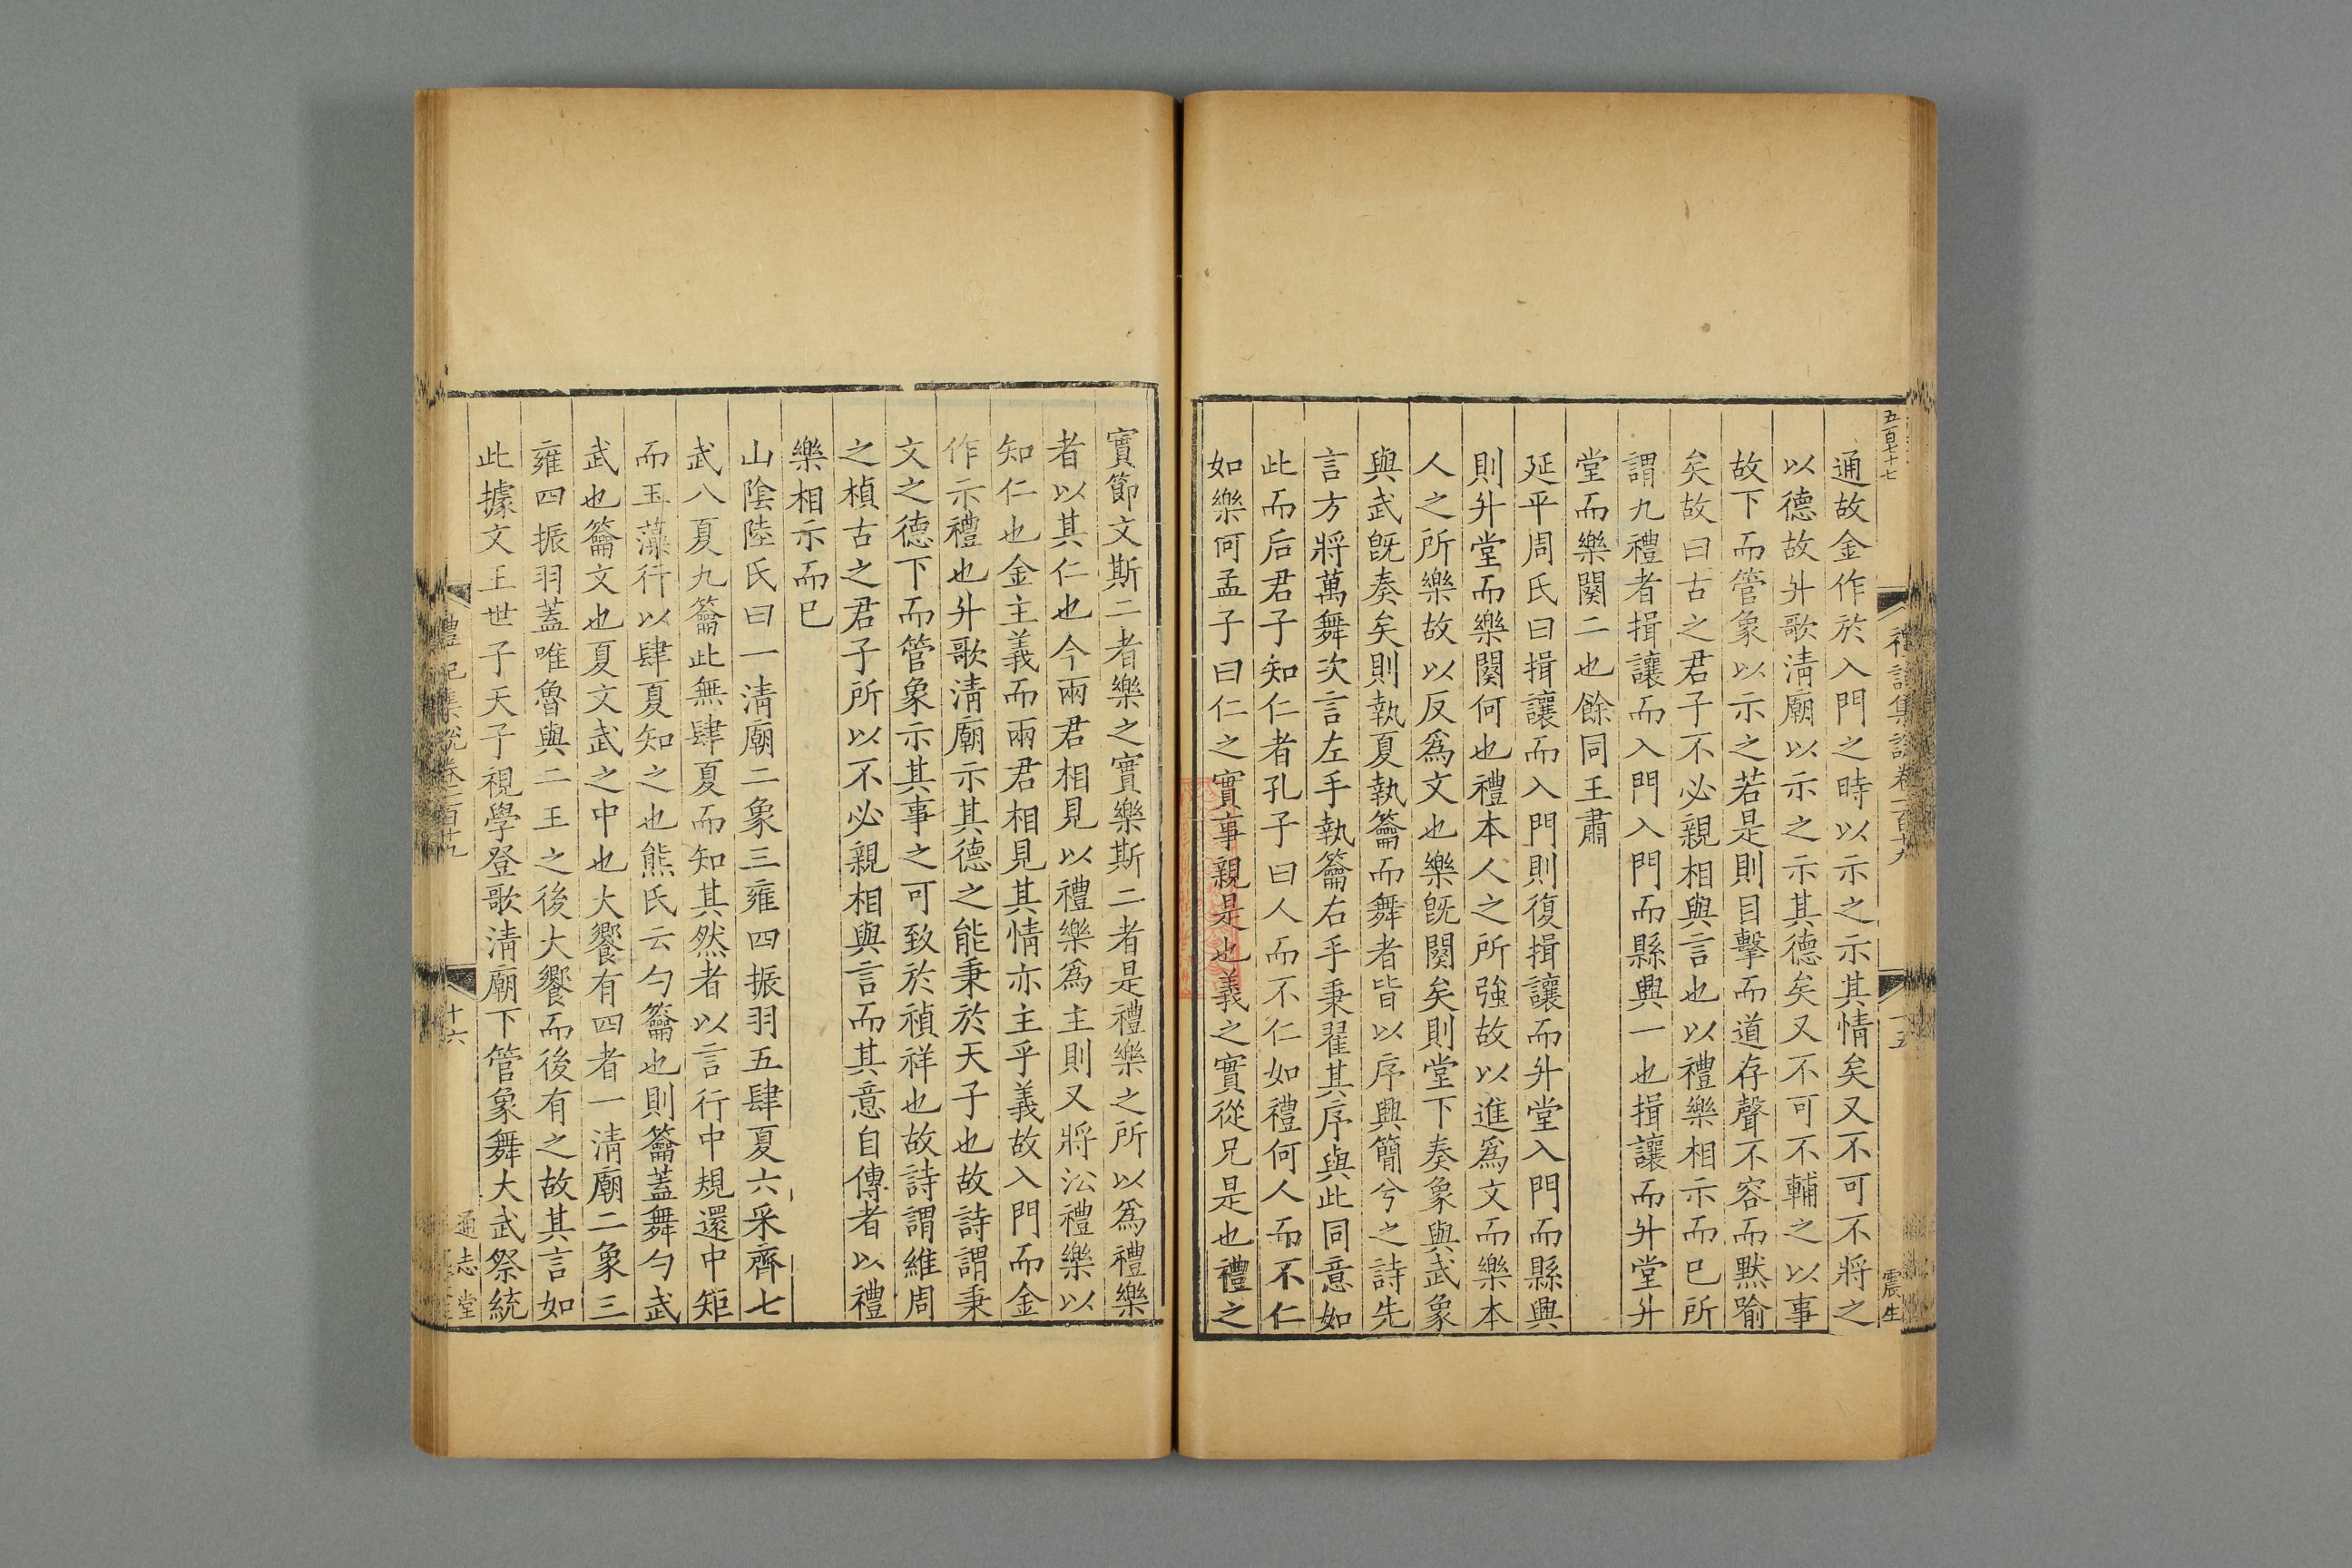 五百七十七
通故金作於入門之時以示之示其情矣又不可不將之
以德故升歌淸廟以示之示其德矣又不可不輔之以事
故下而管象以示之若是則目擊而道存聲不容而默喻
矣故曰古之君子不必親相與言也以禮樂相示而已所
謂九禮者揖讓而入門入門而縣興一也揖讓而升堂升
堂而樂闋二也餘同王肅
延平周氏曰揖讓而入門則復揖讓而升堂入門而縣興
則升堂而樂闋何也禮本人之所強故以進爲文而樂本
人之所樂故以反爲文也樂旣闋矣則堂下奏象與武象
與武旣奏矣則執夏執籥而舞者皆以序興簡兮之詩先
言方將萬舞次言左手執籥右手秉翟其序與此同意如
此而后君子知仁者孔子曰人而不仁如禮何人而不仁
如樂何孟子曰仁之實事親是也義之實從兄是也禮之
震生
實節文斯二者樂之實樂斯二者是禮樂之所以爲禮樂
者以其仁也今兩君相見以禮樂爲主則又將㳒禮樂以
知仁也金主義而兩君相見其情亦主乎義故入門而金
作示禮也升歌淸廟示其德之能秉於天子也故詩謂秉
文之德下而管象示其事之可致於禎祥也故詩謂維周
之楨古之君子所以不必親相與言而其意自傳者以禮
樂相示而已
山陰陸氏曰一淸廟二象三雍四振羽五肆夏六采齊七
武八夏九籥此無肆夏而知其然者以言行中規還中矩
而玉藻行以肆夏知之也熊氏云勺籥也則籥蓋舞勺武
武也籥文也夏文武之中也大饗有四者一淸廟二象三
雍四振羽蓋唯魯與二王之後大饗而後有之故其言如
此據文王世子天子視學登歌淸廟下管象舞大武祭統
禮記集說卷一百十九
十六
通志堂